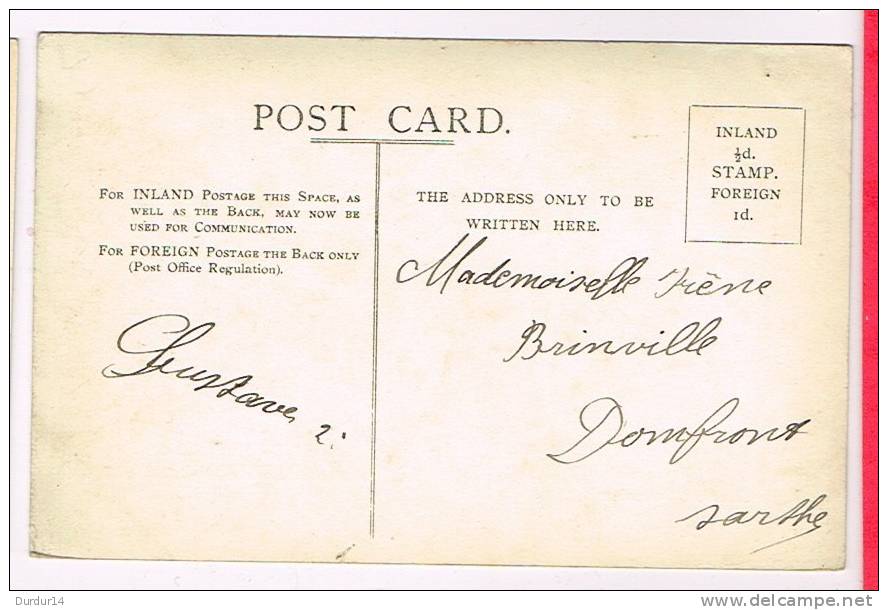 POST CARD.
For INLAND Postage this Space, as
well as the Back, may now be
used for Communication.
For FOREIGN Postage the Back only
(Post Office Regulation).
THE ADDRESS ONLY TO BE
WRITTEN HERE.
INLAND
½d.
STAMP.
FOREIGN
1d.
Gustave
2.
Mademoiselle Irène
Brinville
Domfront
sarthe
Durdur14
delcampe.net